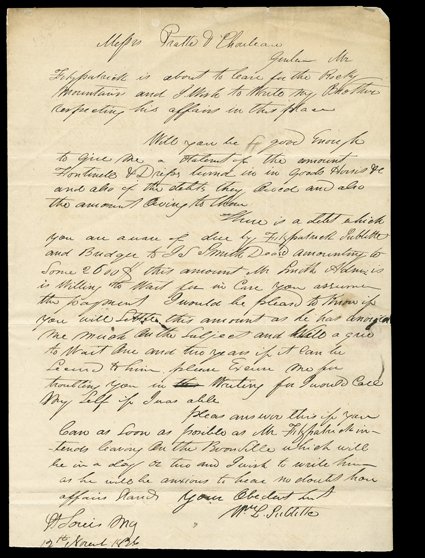 Messrs Pratte & Chouteau
Gentn Mr
Fitzpatrick is about to leave for the Rocky
Mountains and I wish to write my Brother
respecting his affairs in this place
Will you be so good Enough
to give me a statement of the amount
Fontinelle & Drips turned in in Goods Horses &c
and also of the debts they Owed and also
the amount Owing to them
There is a debt which
you are aware of due by Fitzpatrick Sublette
and Bridger to J S Smith Decd amounting to
Some this amount Mr Smith Admrs
is Willing to Wait for in Case you assume
the payment I would be pleased to know if
you will settle this amount as he has
me much On the Subject and will agree
to Wait One and two years if it can be
Secured to him please Excuse me for
troubling you in Writing for I would Call
My Self if I was able
Pleas answer this if you
Can as soon as possible as Mr Fitzpatrick in-
tends leaving On the Boonville which will
be in a day or two and I wish to write him
as he will be anxious to hear no doubt how
affairs stand Your Obedient Svt
Wm L. Sublette
St Louis Mo
12th 1836